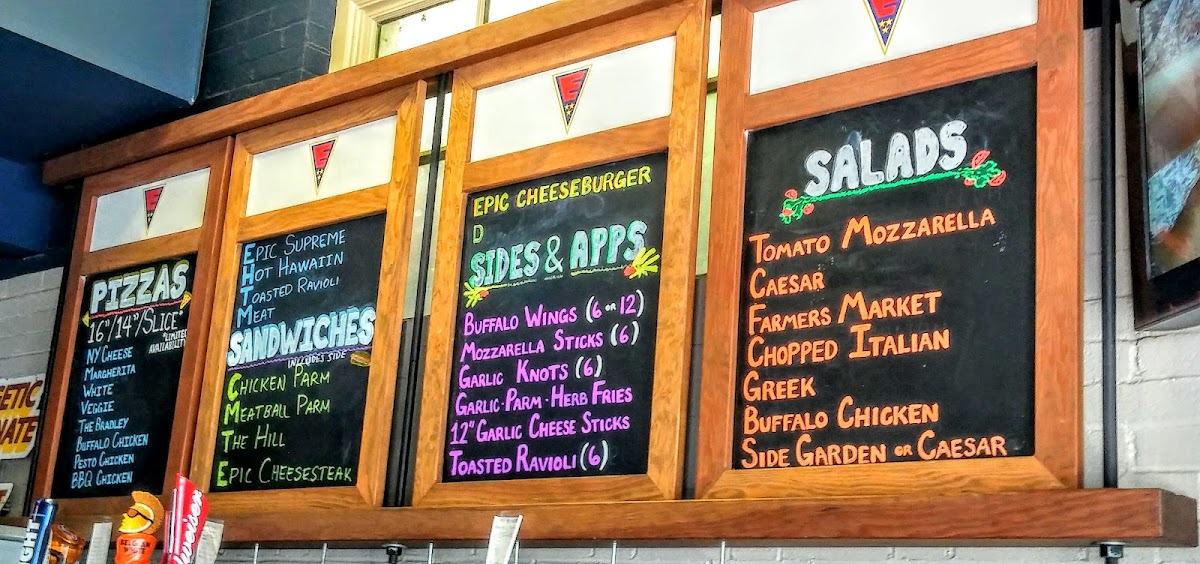 PIZZAS
16"/14"/SLICE*
*LIMITED
AVAILABILITY
NY CHEESE
MARGHERITA
WHITE
VEGGIE
THE BRADLEY
BUFFALO CHICKEN
PESTO CHICKEN
BBQ CHICKEN
EPIC SUPREME
HOT HAWAIIN
TOASTED RAVIOLI
MEAT
SANDWICHES
INCLUDES SIDE
CHICKEN PARM
MEATBALL PARM
THE HILL
EPIC CHEESESTEAK
E
EPIC CHEESEBURGER
D
SIDES & APPS
BUFFALO WINGS (6 OR 12)
MOZZARELLA STICKS (6)
GARLIC KNOTS (6)
GARLIC-PARM-HERB FRIES
12" GARLIC CHEESE STICKS
TOASTED RAVIOLI (6)
E
SALADS
TOMATO MOZZARELLA
CAESAR
FARMERS MARKET
CHOPPED ITALIAN
GREEK
BUFFALO CHICKEN
SIDE GARDEN OR CAESAR